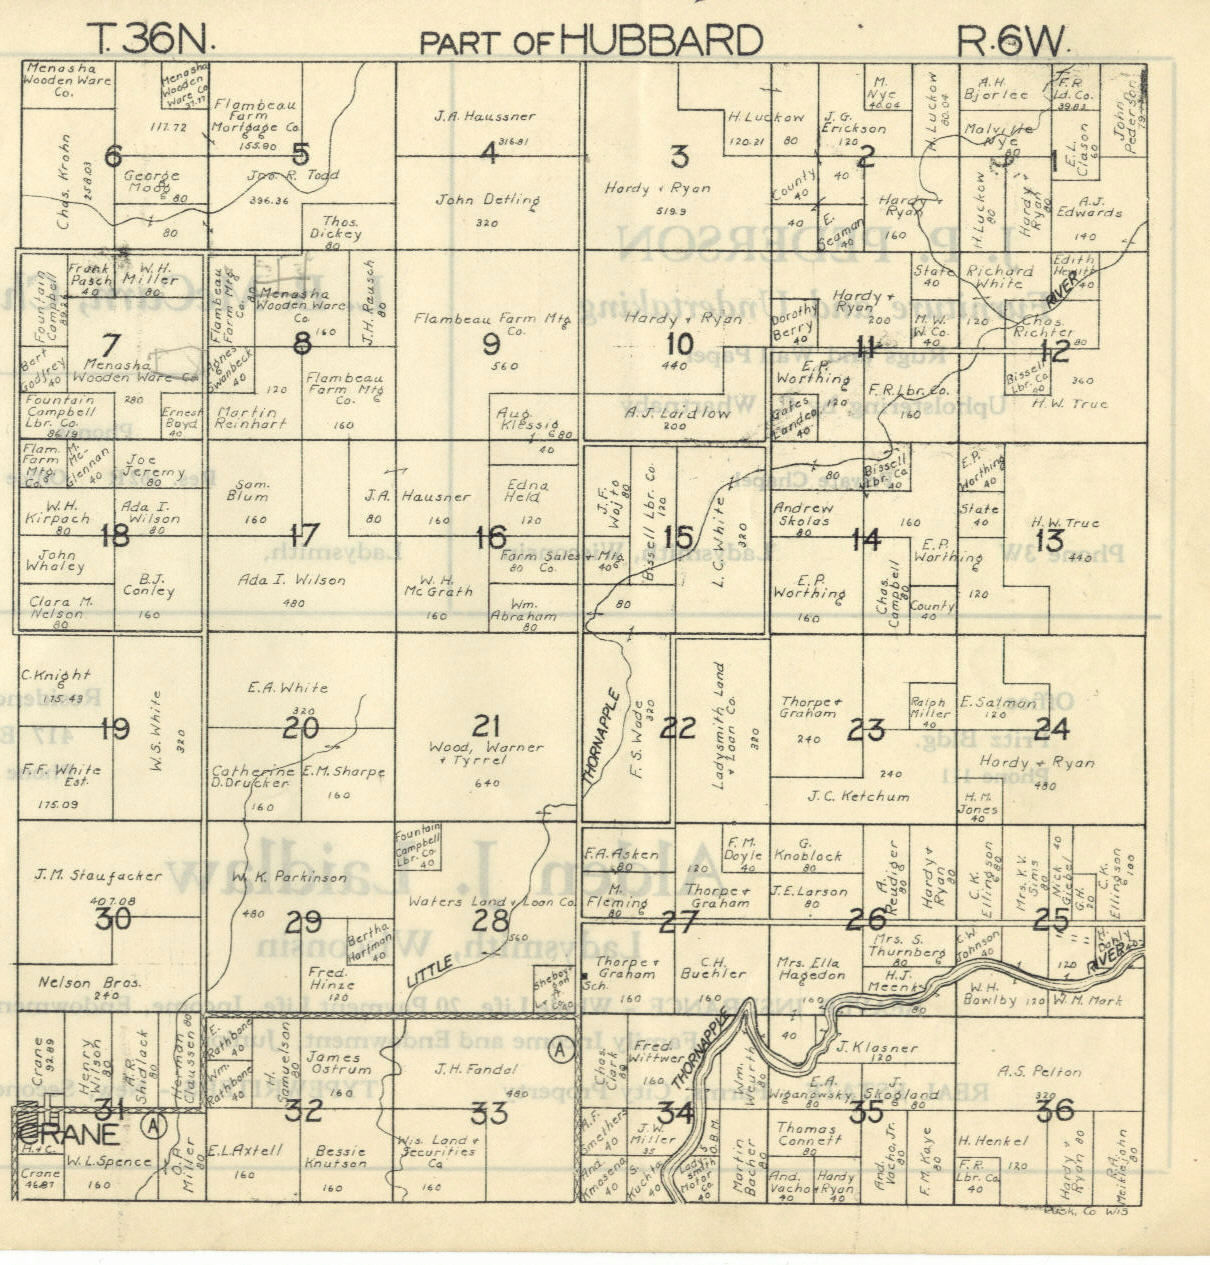 T. 36N.
PART OF HUBBARD
R. 6W.
Menasha
Wooden Ware
Co.
Menasha
Wooden
Ware Co
37.77
117.72
Chas. Krohn
258.03
6
George
80
80
Flambeau
Farm
Mortgage Co.
155.90
5
Jno. R. Todd
396.36
Thos.
Dickey
80
J.A. Haussner
316.81
4
John Detling
320
3
Hardy & Ryan
519.9
H. Luckow
120.21
80
J. G.
Erickson
120
M.
Nye
40.04
H. Luckow
80.04
2
County
40
40
40
E.
Seaman
40
Hardy &
Ryan
160
A.H.
Bjorlee
F.R.
Ld. Co.
39.82
John
Pederson
Malville
Nye
80
E.L.
Clason
60
1
H. Luckow
80
Hardy
Ryan
80
A.J.
Edwards
140
Fountain
Campbell
Frank
Pasch
40
W.H.
Miller
80
7
Bert
Godfrey
40
Menasha
Wooden Ware Co
280
Fountain
Campbell
Lbr. Co.
86.19
Ernest
Boyd
40
Flambeau
Farm Mtg
Co.
Menasha
Wooden Ware
Co
160
J.H. Rausch
80
8
Agnes
Swanbeck
40
120
Flambeau
Farm Mtg
Co.
160
Martin
Reinhart
Flambeau Farm Mtg
Co.
9
560
Aug.
Klessig
80
40
Hardy & Ryan
10
440
A.J. Laidlow
200
Dorothy
Berry
40
Hardy &
Ryan
200
State
40
M. W.
W. Co.
40
11
E.P.
Worthing
120
Gates
Land Co.
40
F.R. Lbr. Co.
160
Richard
White
120
Edith
40
RIVER
Chas.
Richter
80
12
Bissell
Lbr. Co
40
360
H.W. True
Flam.
Farm
Mtg
Co.
M.
Mc-
Glennan
40
Joe
Jeremy
80
W.H.
Kirpach
80
Ada I.
Wilson
80
18
John
Whaley
B.J.
Conley
160
Clara M.
Nelson
80
Sam.
Blum
160
J.A. Hausner
80
160
17
Ada I. Wilson
480
16
Edna
Held
120
Farm Sales & Mtg.
80 Co.
40
W.H.
McGrath
160
Wm.
Abraham
80
J.F.
Wojta
80
Bissell Lbr. Co.
120
15
L.C. White
320
80
80
Bissell
Lbr. Co
40
Andrew
Skolas
80
160
14
E.P.
Worthing
160
Chas.
Campbell
80
E.P.
Worthing
County
40
120
E.P.
Worthing
40
State
40
13
H.W. True
440
C. Knight
175.43
19
W.S. White
320
F.F. White
Est.
175.09
E.A. White
320
20
Catherine
D. Drucker
160
E.M. Sharpe
160
21
Wood, Warner
& Tyrrel
640
THORNAPPLE
F.S. Wade
320
22
Ladysmith Land
& Loan Co.
320
Thorpe &
Graham
240
23
Ralph
Miller
40
240
J.C. Ketchum
E. Salman
120
24
Hardy & Ryan
480
H.M.
Jones
40
J.M. Staufacker
407.08
30
Nelson Bros.
240
W.K. Parkinson
480
29
Bertha
Hartman
40
Fred.
Hinze
120
Fountain
Campbell
Lbr. Co
40
Waters Land & Loan Co.
28
560
LITTLE
F.A. Asken
80
M.
Fleming
80
120
F.M.
Doyle
40
Thorpe &
Graham
27
Thorpe &
Graham
Sch.
160
C.H.
Buehler
160
G.
Knoblock
80
J.E. Larson
80
A.
Reudiger
80
Hardy &
Ryan
80
26
Mrs. Ella
Hagedon
160
Mrs. S.
Thurnberg
80
H.J.
Meenk
80
C.K.
Ellingson
80
Mrs. V.V.
Sims
80
Nick
Giebel
40
G.H.
20
C.K.
Ellingson
100
25
C.W.
Johnson
40
120
RIVER
W.H.
Bowlby 120
W.M. Mark
Crane
92.89
Henry
Wilson
80
A.R.
Shidlack
80
Herman
Claussen 80
31
CRANE
A
H. & C.
Crane
46.87
W.L. Spence
160
O.A.
Miller
80
E.
Rathbone
40
Wm.
Rathbone
40
H.
Samuelson
80
James
Ostrum
160
32
E.L. Axtell
160
Bessie
Knutson
160
A
J.H. Fandal
480
33
Wis. Land &
Securities
Co
160
Chas.
Clark
80
Fred.
Wittwer
160
THORNAPPLE
Wm.
Weurth
80
34
A.F.
Smethers
40
J.W.
Miller
35
And.
Kmosena
40
S.
Kuchta
40
Lady-
smith
Motor
Co
40
Martin
Bacher
80
40
J. Klasner
120
E.A.
Wiganowsky
80
J.
Skogland
80
35
Thomas
Connett
80
And.
Vacho
40
Hardy
& Ryan
40
And.
Vacho, Jr.
80
F.M. Kaye
80
A.S. Pelton
320
36
H. Henkel
120
F.R.
Lbr. Co.
40
Hardy &
Ryan 80
R.A.
Meiklejohn
80
Rusk, Co Wis